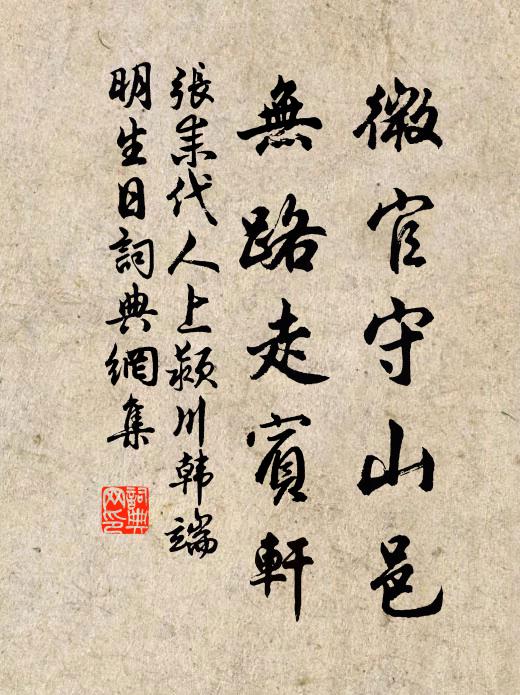 微官守山邑
無路走賓軒
張耒代人上颍川韩端
明生日詞典網集
詞典
网印